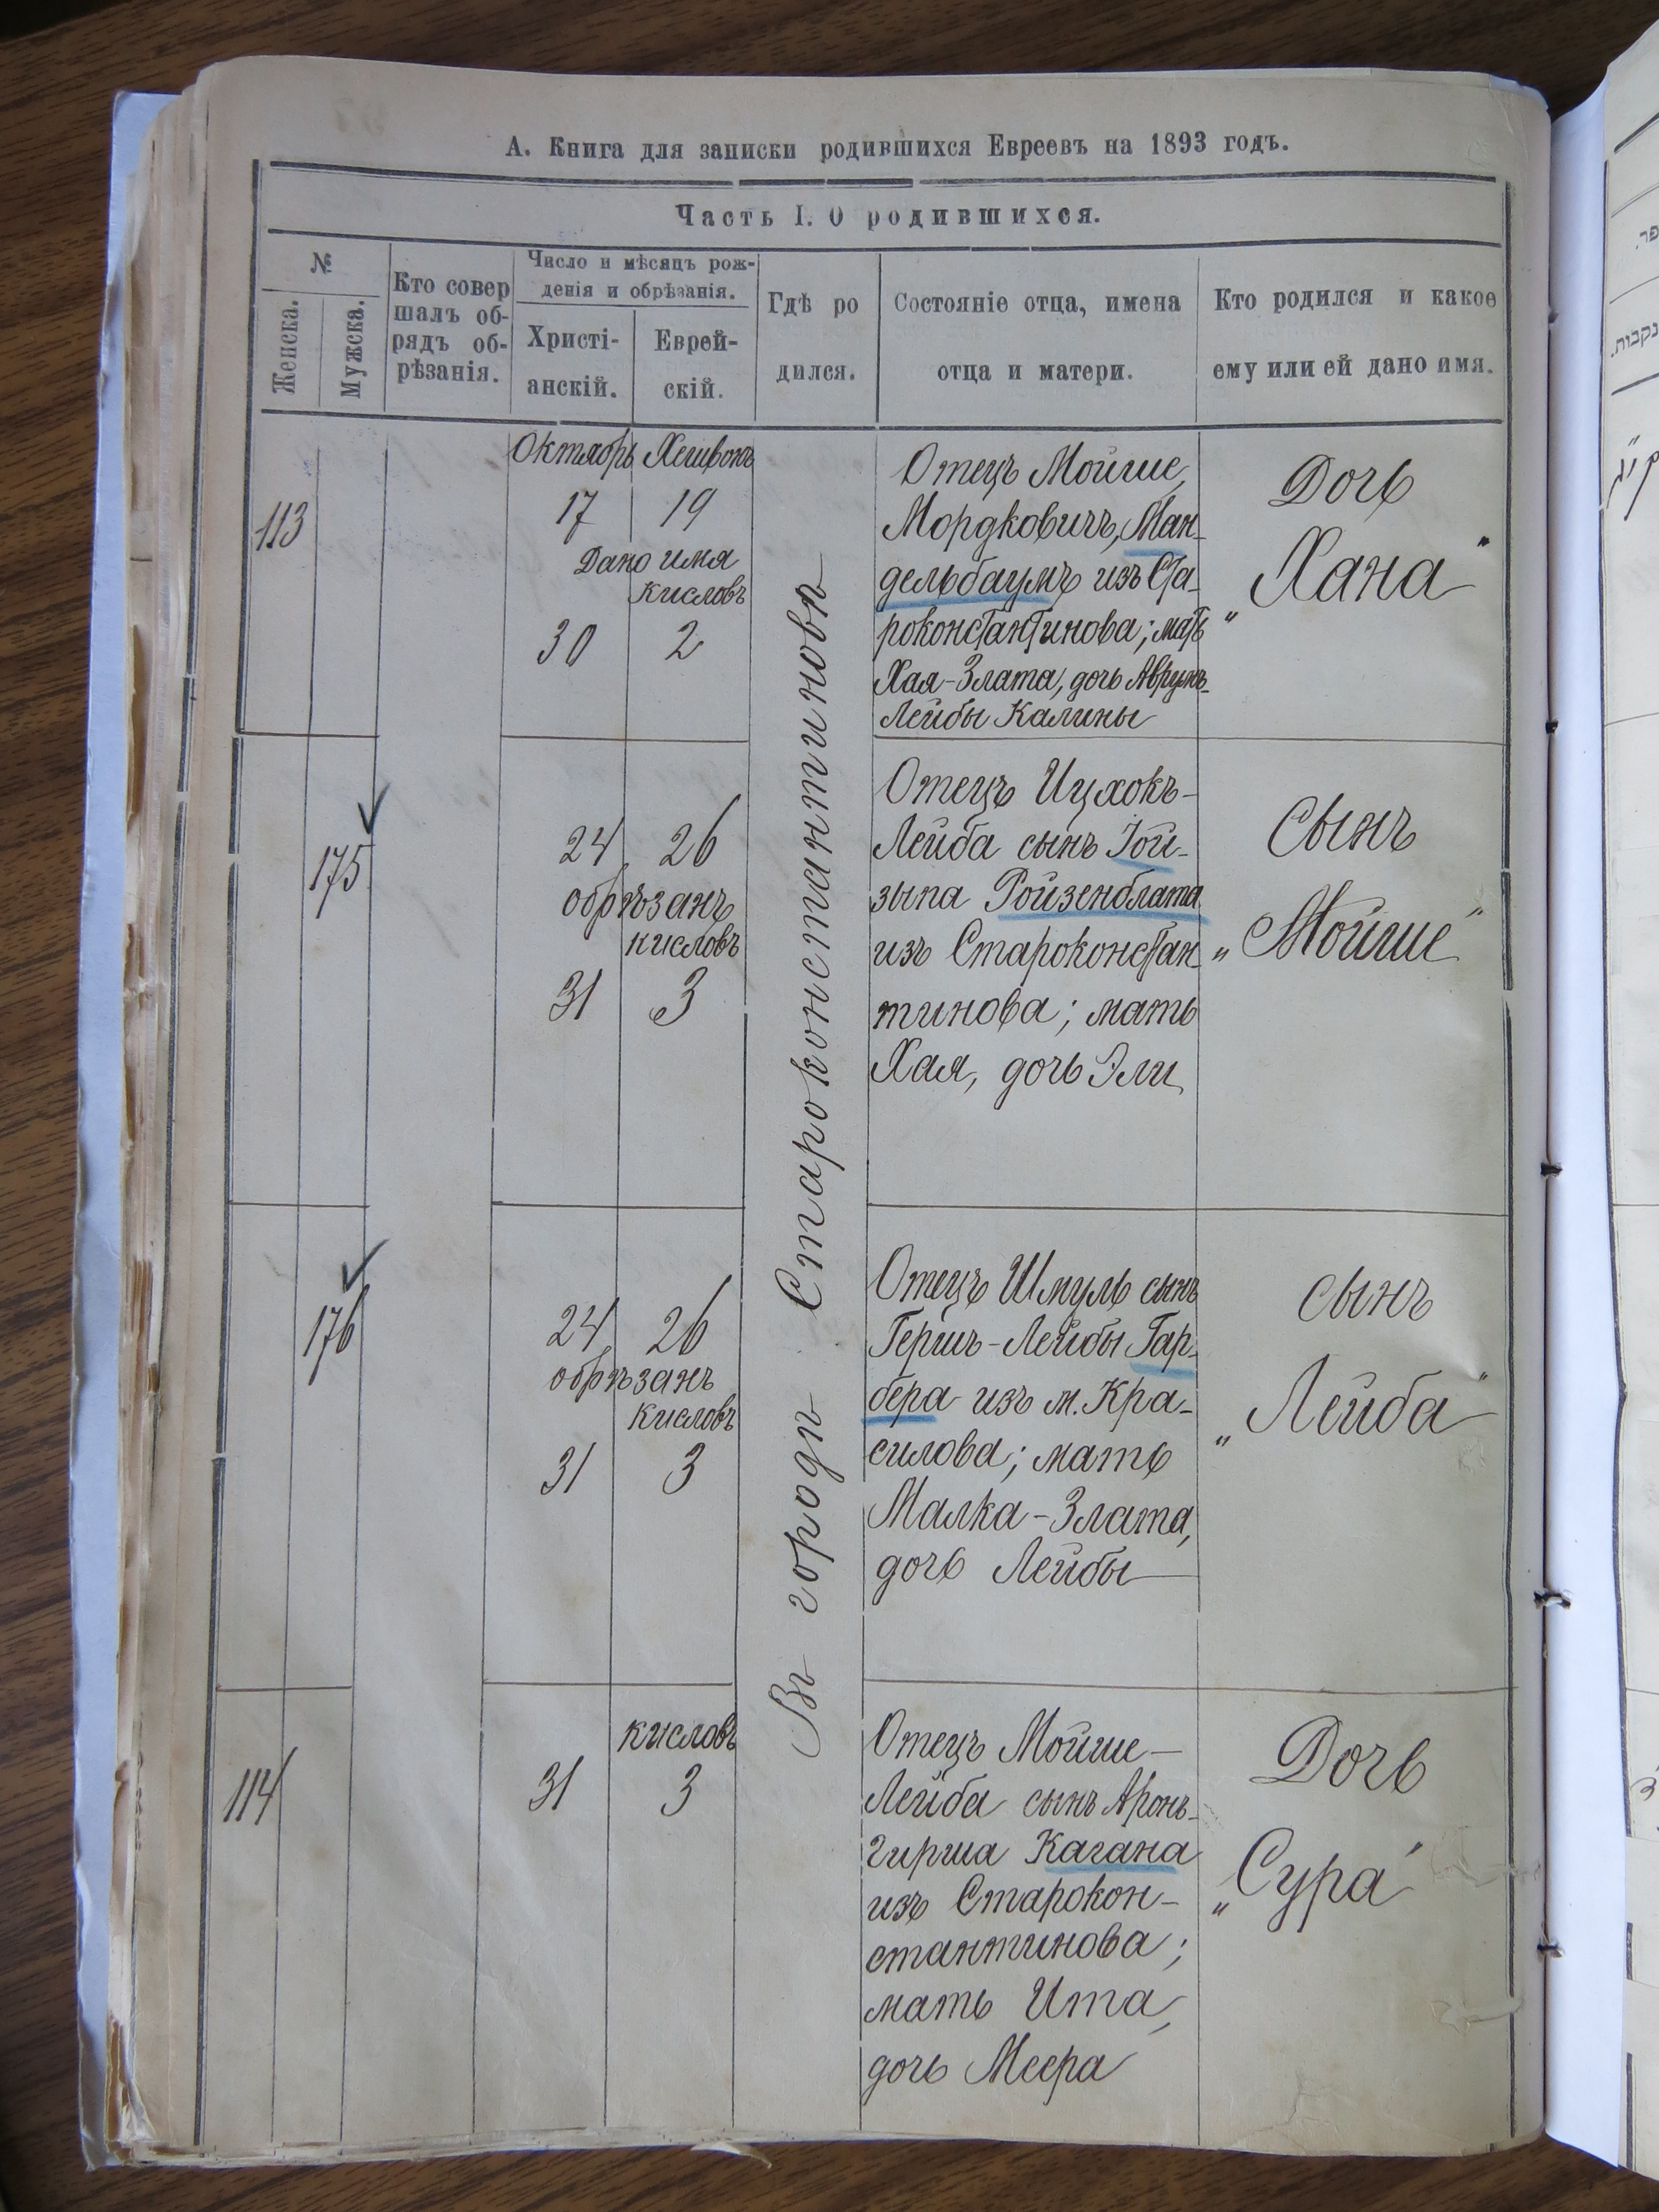 А. Книга для записки родившихся Евреевъ на 1893 годъ.
Часть I. О родившихся.
№
Женска.
Мужска.
Кто совер
шалъ об-
рядъ об-
рѣзанія.
Число и мѣсяцъ рож-
денія и обрѣзанія.
Христі-
анскій.
Еврей-
скій.
Гдѣ ро
дился.
Состояніе отца, имена
отца и матери.
Кто родился и какое
ему или ей дано имя.
Въ городѣ Староконстантиновѣ
113
Октябрь Хешвонъ
17 19
Дано имя
Кисловъ
30 2
Отецъ Мойше
Мордковичъ, Ман-
дельбаумъ изъ Ста-
роконстантинова; мать
Хая-Злата, дочь Аврумъ-
Лейбы Калины
Дочь
„Хана"
175
24 26
обрѣзанъ
кисловъ
31 3
Отецъ Ицхокъ-
Лейба сынъ Іой-
зыпа Ройзенблата
изъ Староконстан-
тинова; мать
Хая, дочь Эли
Сынъ
„Мойше"
176
24 26
обрѣзанъ
Кисловъ
31 3
Отецъ Шмуль сынъ
Гершъ-Лейбы Гар-
бера изъ м. Кра-
силова; мать
Малка-Злата,
дочь Лейбы
сынъ
„Лейба"
114
кисловъ
31 3
Отецъ Мойше-
Лейба сынъ Аронъ-
Гирша Кагана
изъ Старокон-
стантинова;
мать Ита,
дочь Меера
Дочь
„Сура"